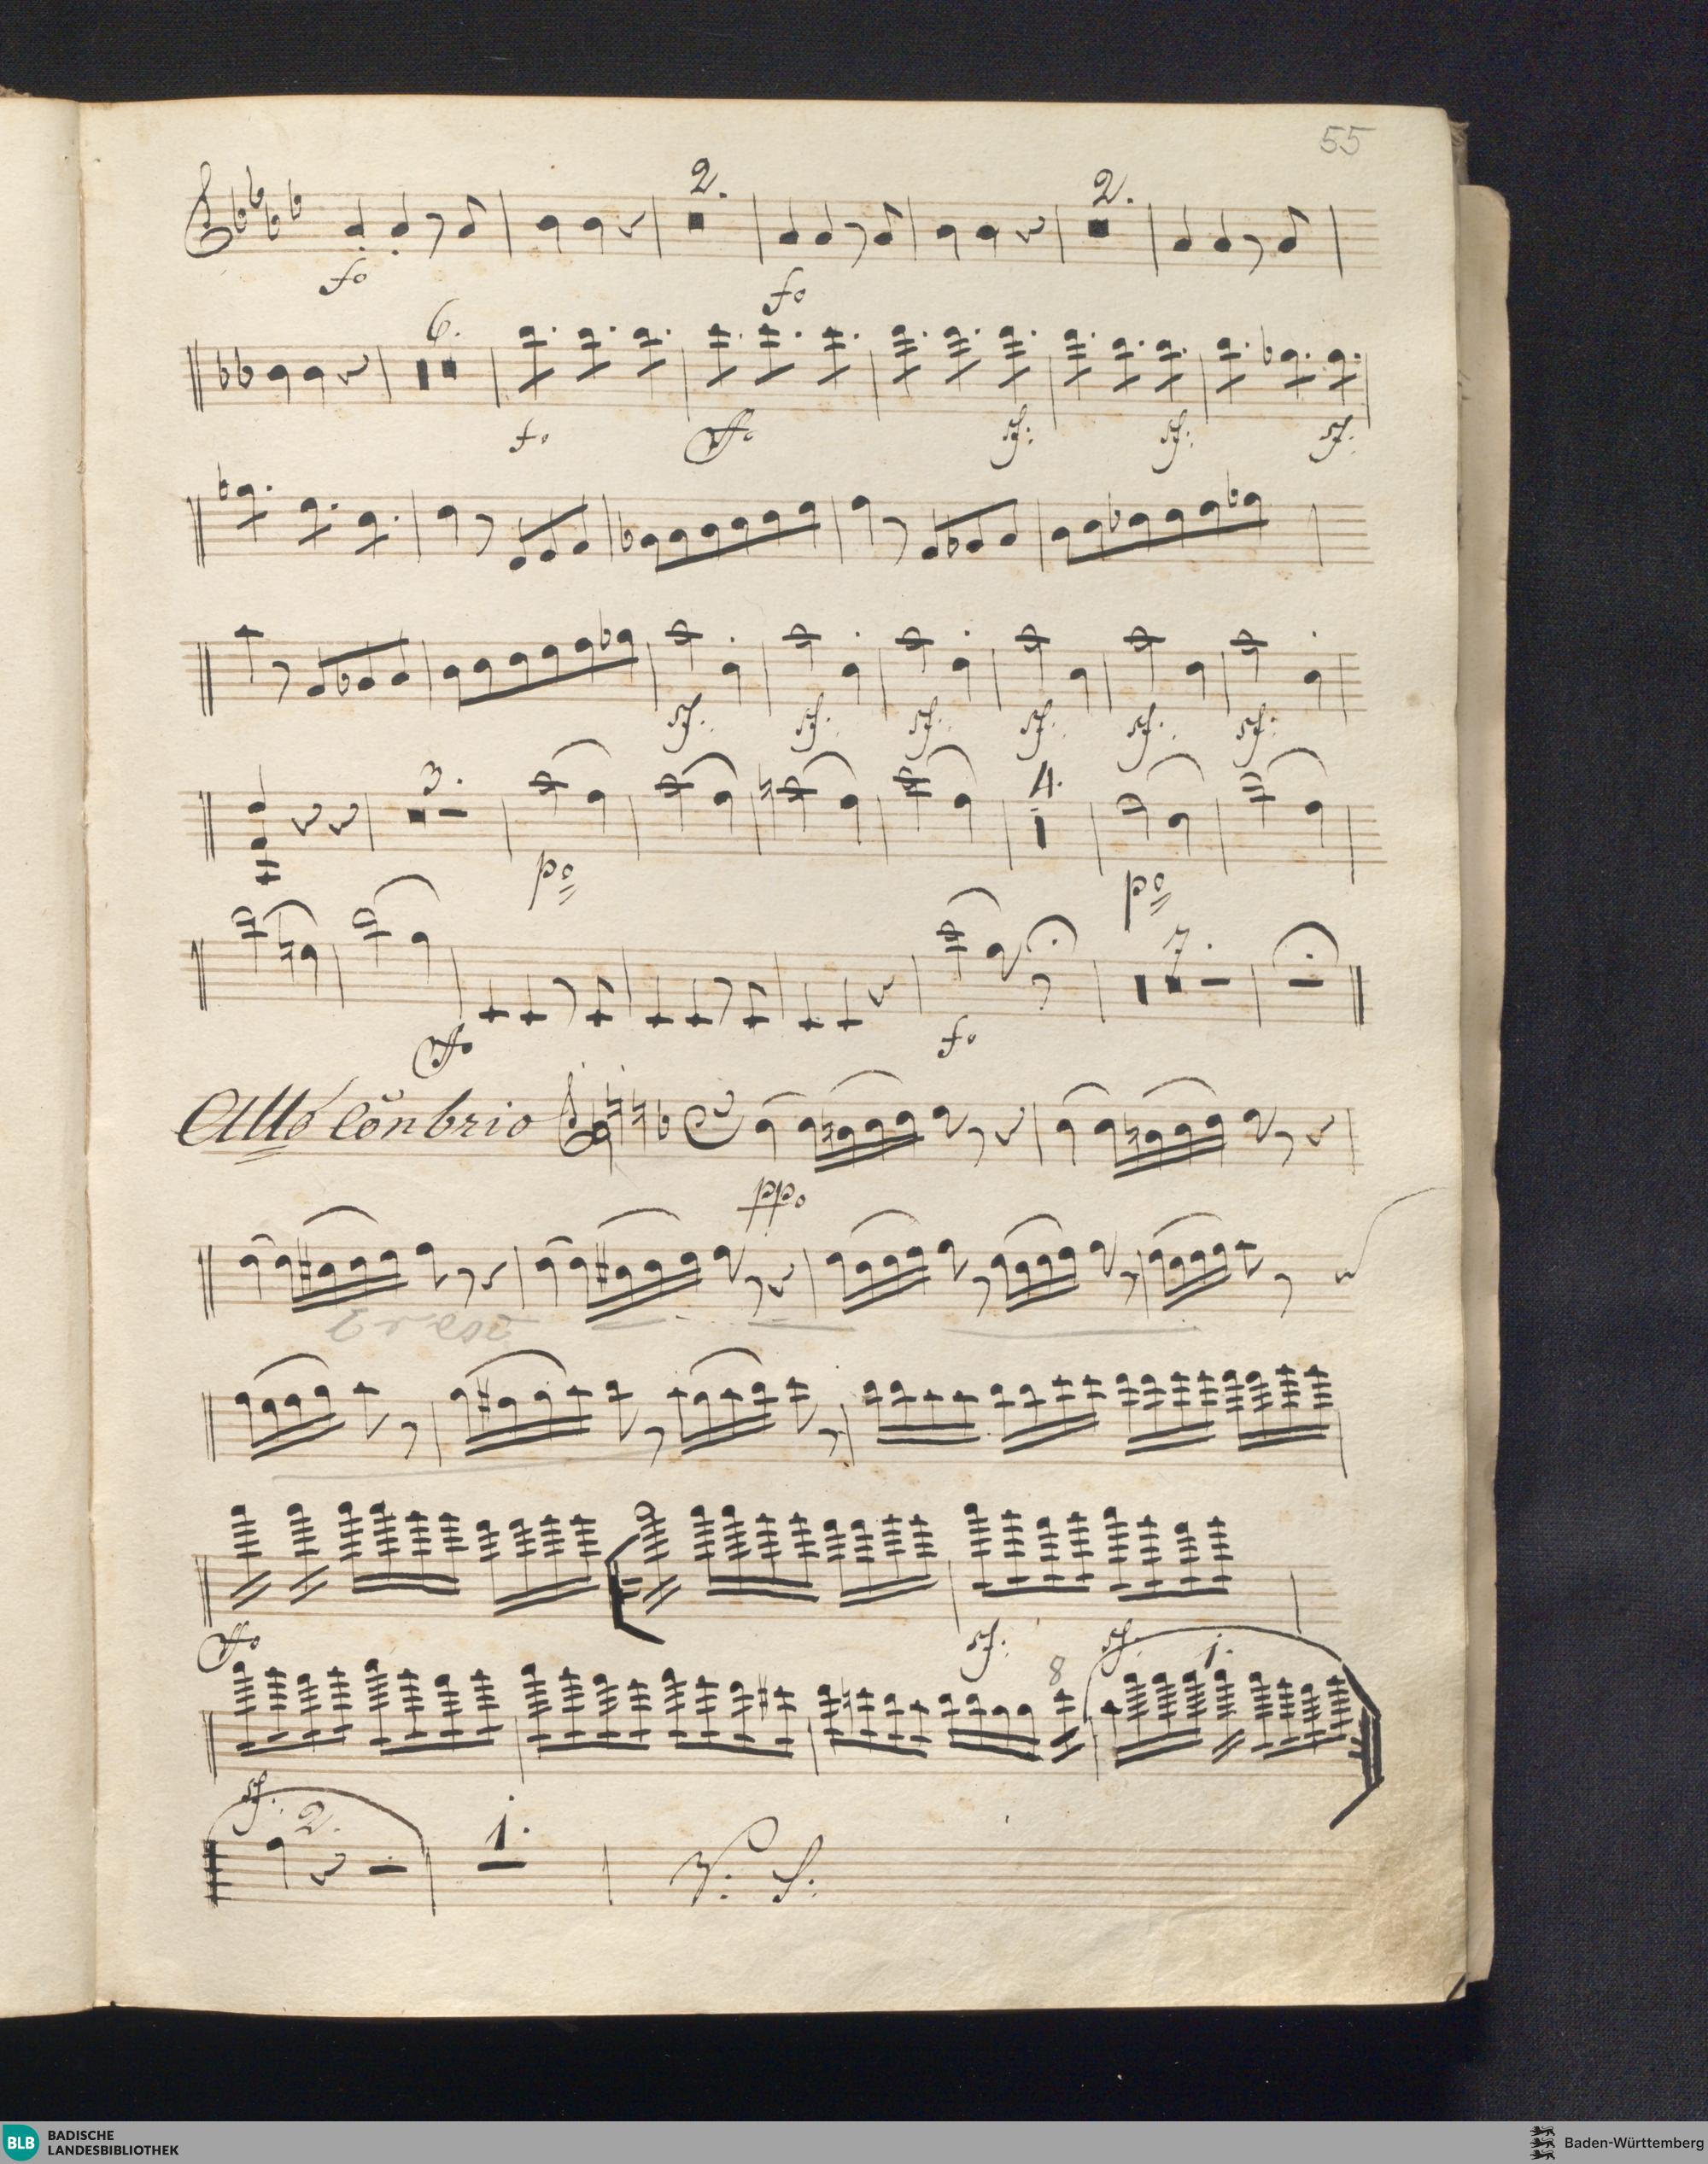 55
2. 2.
fo fo
6.
fo ffo sf: sf: sf:
sf: sf: sf: sf: sf: sf:
3. 4.
po po
7.
ffo fo
Allo Con brio
ppo
ffo sf: sf:
8 1.
sf:
2. 1. V: S:
BLB BADISCHE
LANDESBIBLIOTHEK
Baden-Württemberg